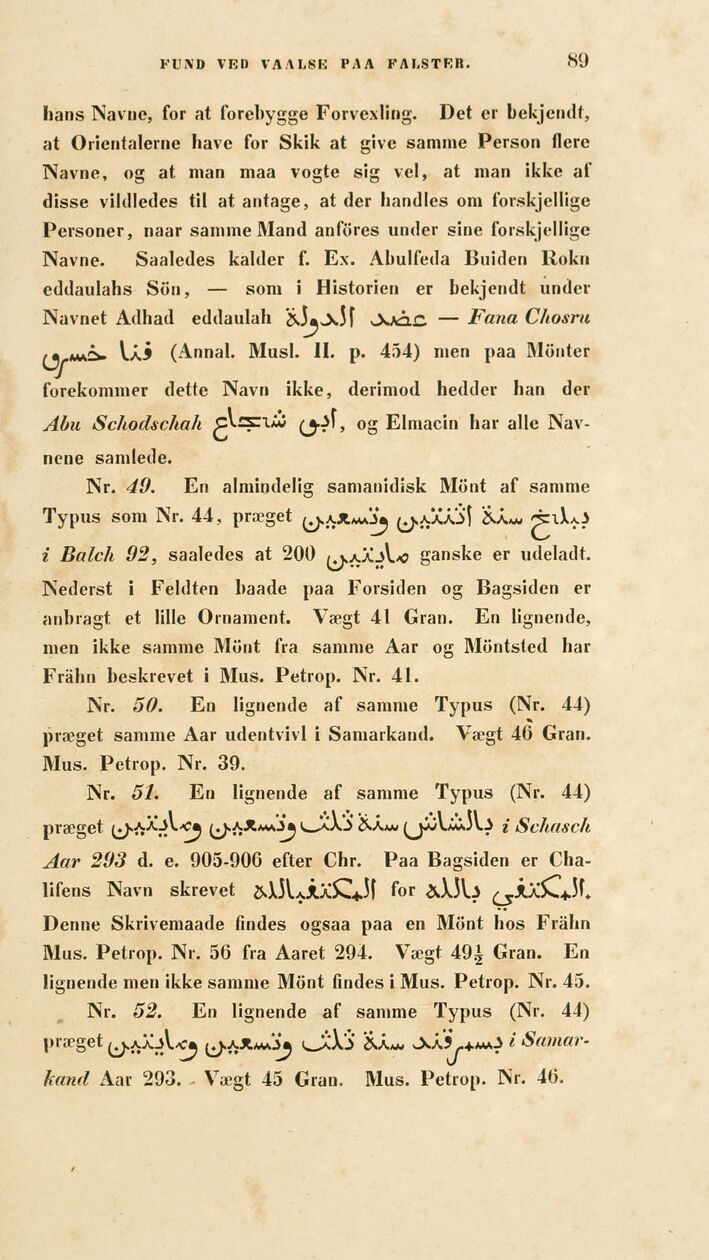 FUND VED VAALSE PAA FALSTER. 89
hans Navne, for at forebygge Forvexling. Det er bekjendt,
at Orientalerne have for Skik at give samme Person flere
Navne, og at man maa vogte sig vel, at man ikke af
disse vildledes til at antage, at der handles om forskjellige
Personer, naar samme Mand anföres under sine forskjellige
Navne. Saaledes kalder f. Ex. Abulfeda Buiden Rokn
eddaulahs Sön, — som i Historien er bekjendt under
Navnet Adhad eddaulah عضد الدولة — Fana Chosru
فنا خسرو (Annal. Musl. II. p. 454) men paa Mönter
forekommer dette Navn ikke, derimod hedder han der
Abu Schodschah ابو شجاع, og Elmacin har alle Nav-
nene samlede.
Nr. 49. En almindelig samanidisk Mönt af samme
Typus som Nr. 44, præget ببلخ سنة اثنتين وتسعين
i Balch 92, saaledes at 200 مايتين ganske er udeladt.
Nederst i Feldten baade paa Forsiden og Bagsiden er
anbragt et lille Ornament. Vægt 41 Gran. En lignende,
men ikke samme Mönt fra samme Aar og Möntsted har
Frähn beskrevet i Mus. Petrop. Nr. 41.
Nr. 50. En lignende af samme Typus (Nr. 44)
præget samme Aar udentvivl i Samarkand. Vægt 46 Gran.
Mus. Petrop. Nr. 39.
Nr. 51. En lignende af samme Typus (Nr. 44)
præget بالشاش سنة ثلث وتسعين ومايتين i Schasch
Aar 293 d. e. 905-906 efter Chr. Paa Bagsiden er Cha-
lifens Navn skrevet المكتفيالله for المكتفي بالله.
Denne Skrivemaade findes ogsaa paa en Mönt hos Frähn
Mus. Petrop. Nr. 56 fra Aaret 294. Vægt 49½ Gran. En
lignende men ikke samme Mönt findes i Mus. Petrop. Nr. 45.
Nr. 52. En lignende af samme Typus (Nr. 44)
præget بسمرقند سنة ثلث وتسعين ومايتين i Samar-
kand Aar 293. Vægt 45 Gran. Mus. Petrop. Nr. 46.